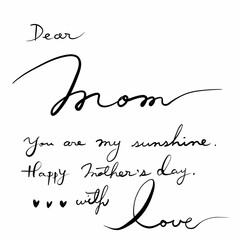 Dear
Mom
You are my sunshine.
Happy Mother's day.
♥♥♥ with
love